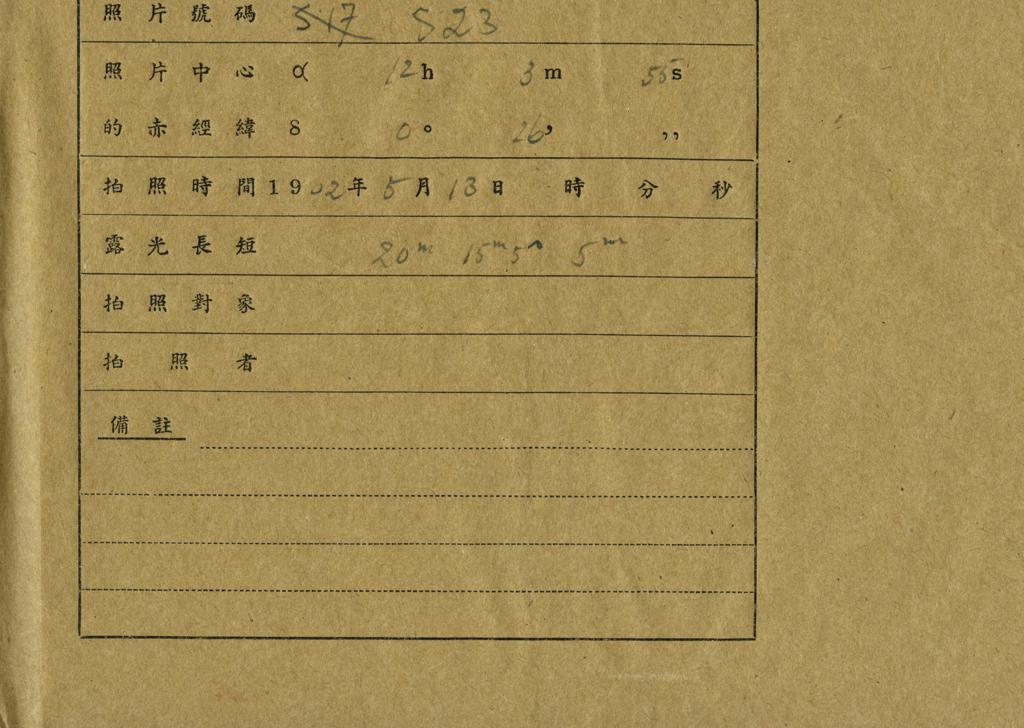 照片號碼 517 S23
照片中心 α 12h 3m 55s
的赤經緯 δ 0° 26' ,,
拍照時間 1902年5月13日 時 分 秒
露光長短 20m 15m5s 5m
拍照對象
拍照者
備註